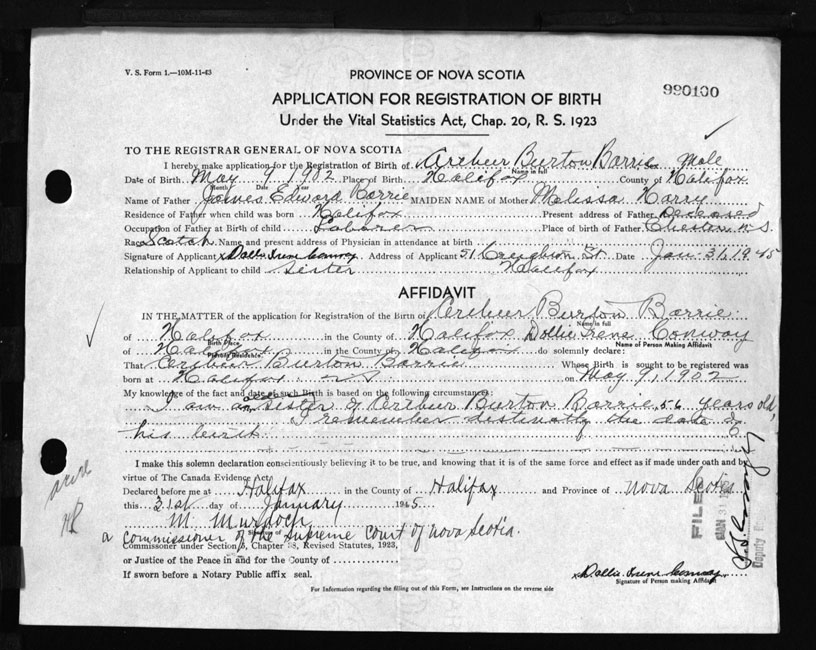 V. S. Form 1.—10M-11-43
PROVINCE OF NOVA SCOTIA
990100
APPLICATION FOR REGISTRATION OF BIRTH
Under the Vital Statistics Act, Chap. 20, R. S. 1923
TO THE REGISTRAR GENERAL OF NOVA SCOTIA
I hereby make application for the Registration of Birth of Arthur Burton Barrie Sex Male
Name in full
Date of Birth May 9 1902 Place of Birth Halifax County of Halifax
Month Date Year
Name of Father James Edward Barrie MAIDEN NAME of Mother Melissa Harry
Residence of Father when child was born Halifax Present address of Father Deceased
Occupation of Father at Birth of child Laborer Place of birth of Father Chester N.S.
Race Scotch Name and present address of Physician in attendance at birth
Signature of Applicant x Dollie Irene Conway Address of Applicant 51 Creighton St. Date Jan 31, 1945
Relationship of Applicant to child Sister Halifax
AFFIDAVIT
IN THE MATTER of the application for Registration of the Birth of Arthur Burton Barrie
Name in full
of Halifax in the County of Halifax Dollie Irene Conway
Birth Place Name of Person Making Affidavit
of Halifax in the County of Halifax do solemnly declare:
Present Residence.
That Arthur Burton Barrie Whose Birth is sought to be registered was
born at Halifax N.S. on May 9, 1902
My knowledge of the fact and date of such Birth is based on the following circumstances:
I am an older sister of Arthur Burton Barrie, 56 years old,
I remember distinctly the date of
his birth
I make this solemn declaration conscientiously believing it to be true, and knowing that it is of the same force and effect as if made under oath and by
virtue of The Canada Evidence Act.
Declared before me at Halifax in the County of Halifax and Province of Nova Scotia
this 31st day of January 1945.
M. Murdoch
a commissioner of the Supreme Court of Nova Scotia.
Commissioner under Section 5, Chapter 38, Revised Statutes, 1923,
or Justice of the Peace in and for the County of
If sworn before a Notary Public affix seal.
x Dollie Irene Conway
Signature of Person making Affidavit
For Information regarding the filling out of this Form, see Instructions on the reverse side
FILED
JAN 31
Deputy